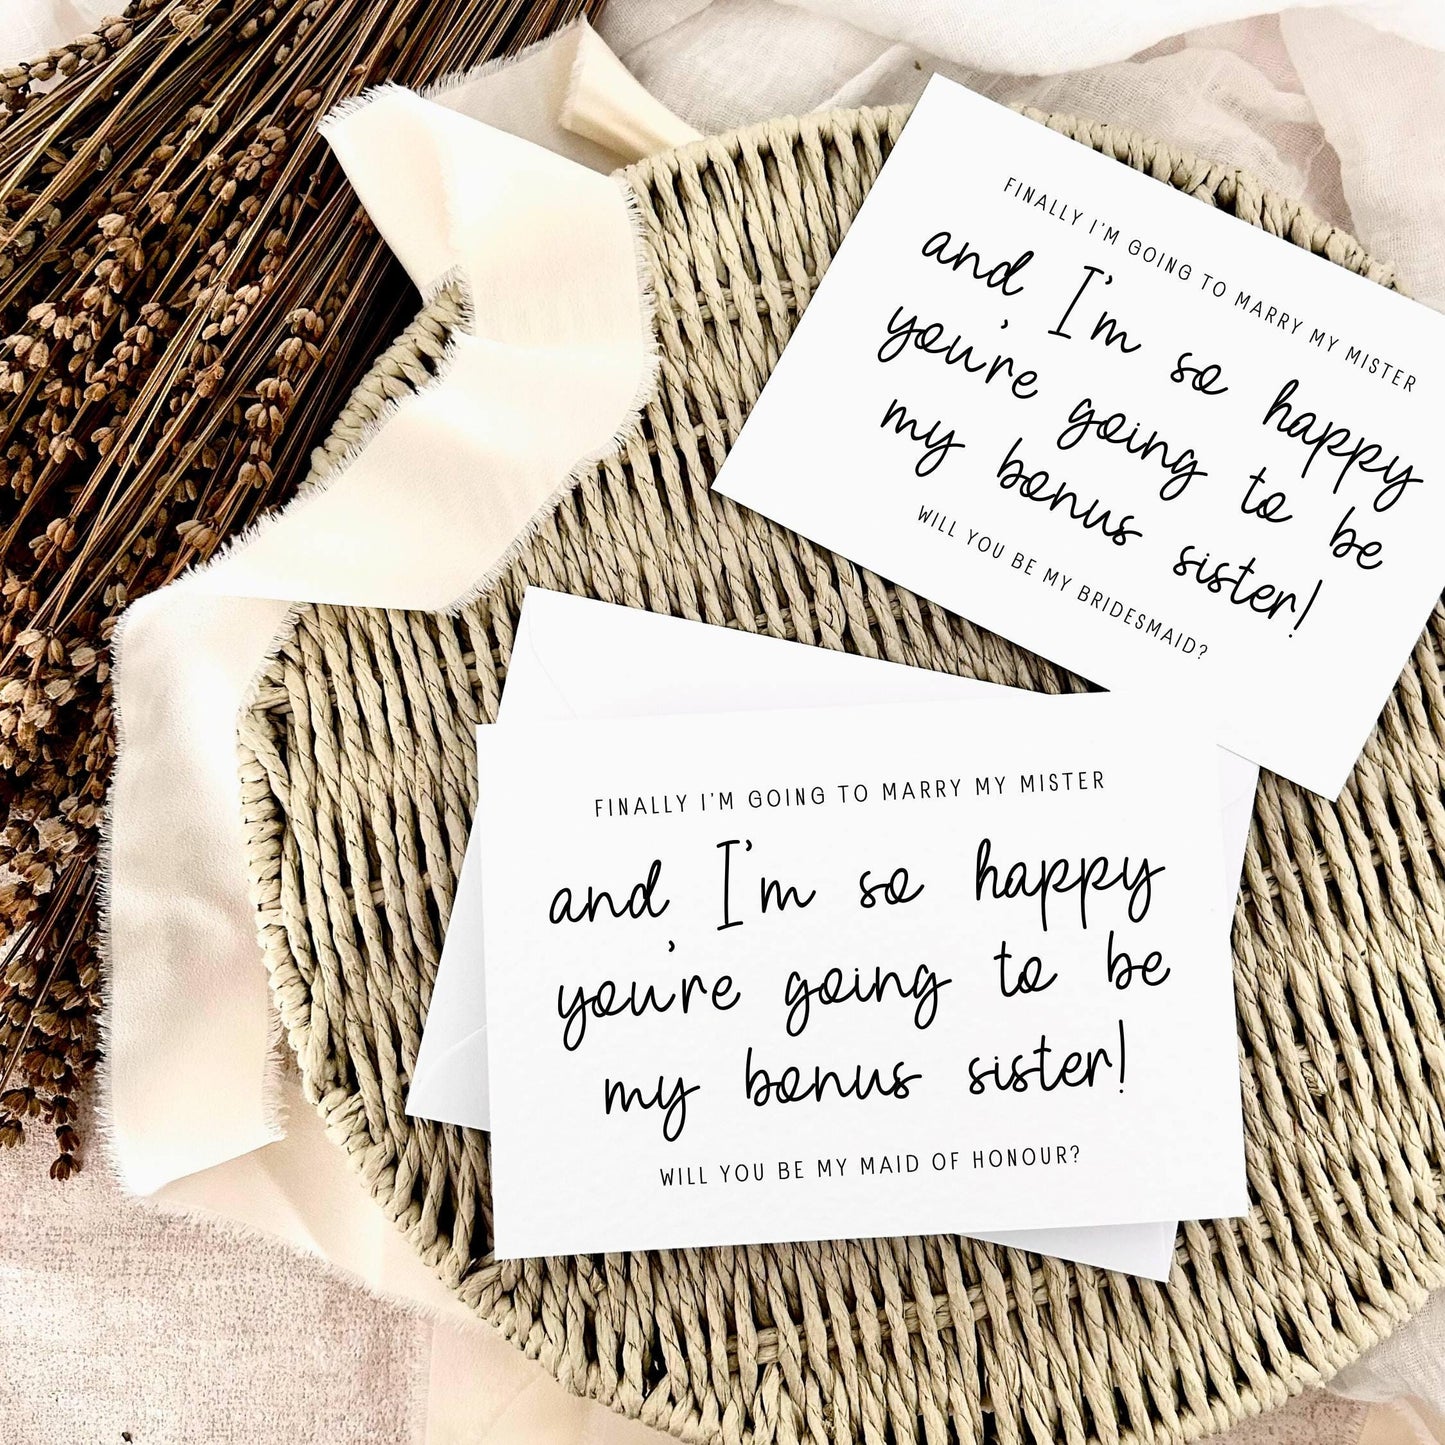 FINALLY I'M GOING TO MARRY MY MISTER
and I'm so happy
you're going to be
my bonus sister!
WILL YOU BE MY BRIDESMAID?
FINALLY I'M GOING TO MARRY MY MISTER
and I'm so happy
you're going to be
my bonus sister!
WILL YOU BE MY MAID OF HONOUR?